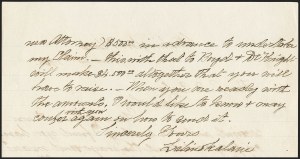 my Attorney) $500.00 in advance to undertake
my Claim. — this with that to Boyd & 
will make $4,500 altogether that you will
have to raise. — When you are ready with
the amount, I would like to know & may
confer again on how to send it.
Sincerely Yours
Liliuokalani